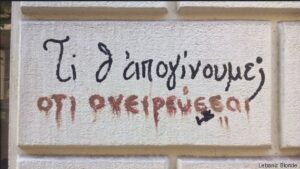 Τι θ' απογίνουμε;
οτι ονειρεύεσαι
Lebaniz Blonde